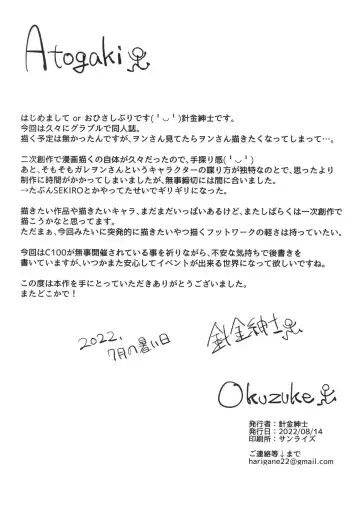 Atogaki
はじめまして or おひさしぶりです(╹◡╹)針金紳士です。
今回は久々にグラブルで同人誌。
描く予定は無かったんだけど、ヲンさん見てたらヲンさん描きたくなってしまって…。
二次創作で漫画描くの自体が久々だったので、手探り感(╹◡╹)
あと、そもそもガレヲンさんというキャラクターの喋り方が独特なのとで、思ったより
制作に時間がかかってしまいましたが、無事締切には間に合いました。
→たぶんSEKIROとかやってたせいでギリギリになった。
描きたい作品や描きたいキャラ、まだまだいっぱいあるけど、またしばらくは一次創作で
描こうかなと思ってます。
ただまぁ、今回みたいに突発的に描きたいやつ描くフットワークの軽さは持っていたい。
今回はC100が無事開催されている事を祈りながら、不安な気持ちで後書きを
書いていますが、いつかまた安心してイベントが出来る世界になって欲しいですね。
この度は本作を手にとっていただきありがとうございました。
またどこかで!
2022,
7月の暑い日
針金紳士
Okuzuke
発行者：針金紳士
発行日：2022/08/14
印刷所：サンライズ
ご連絡等↓まで
harigane22@gmail.com